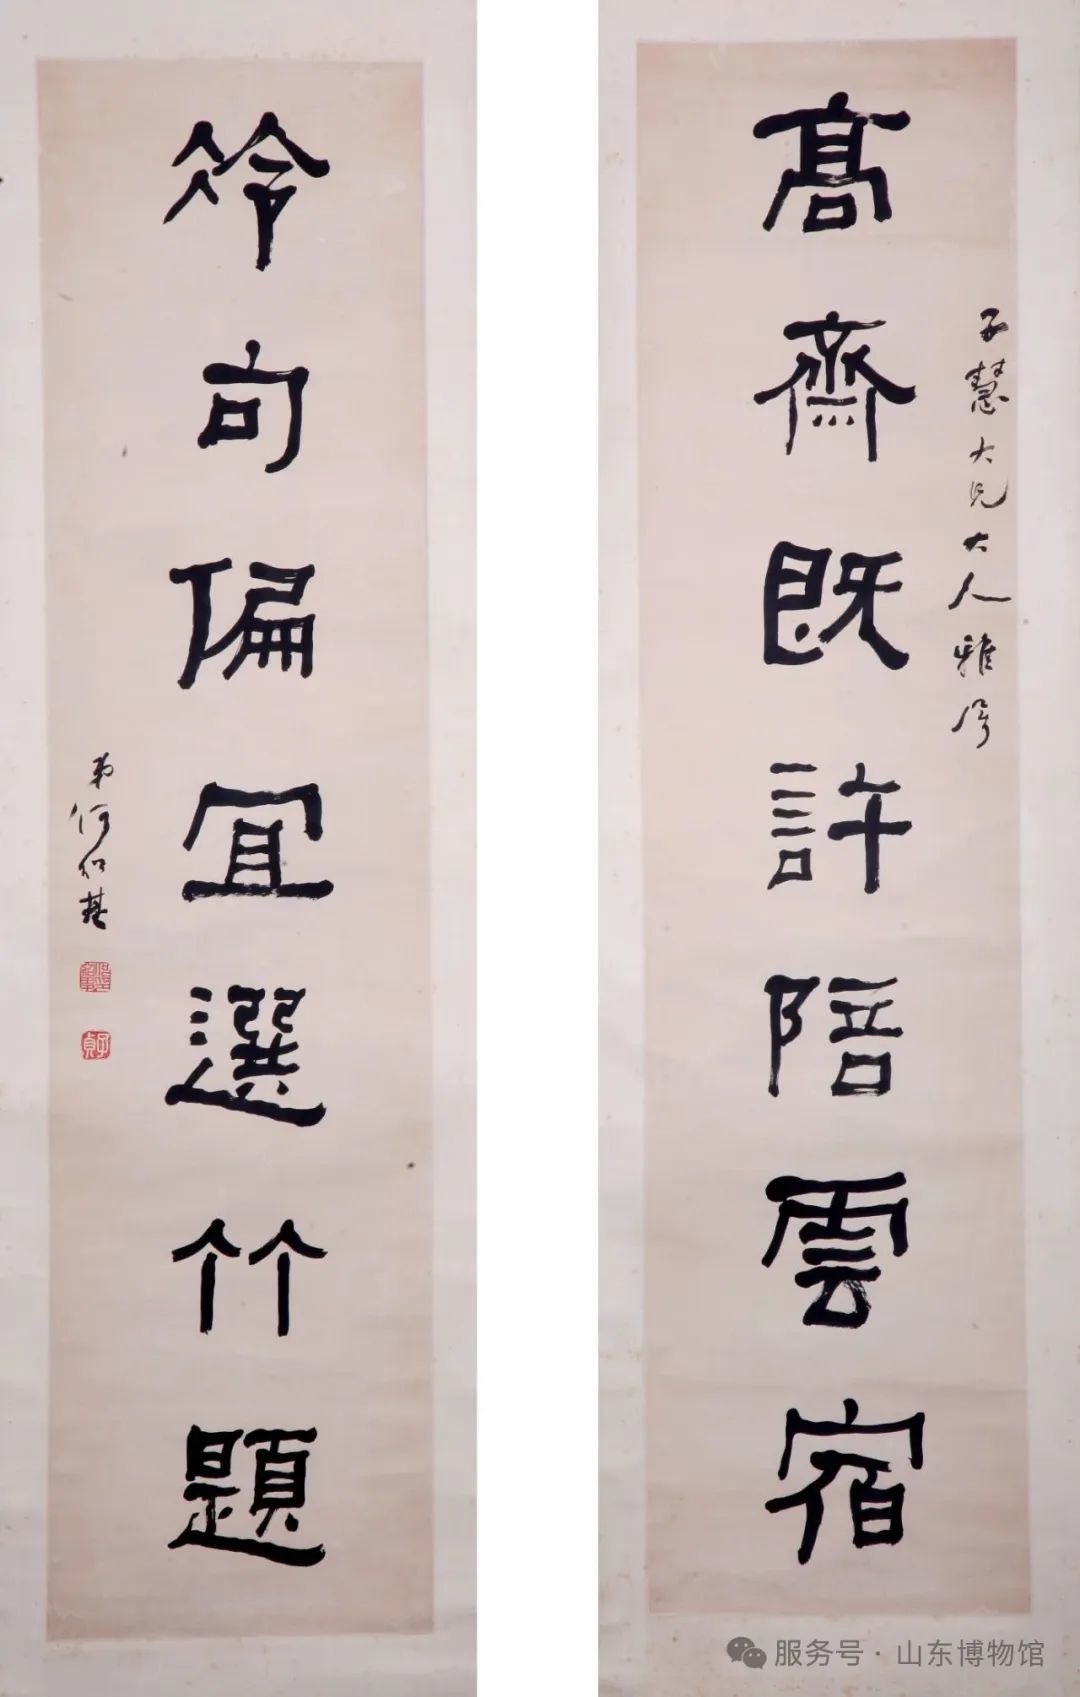 高齋既許陪雲宿
子慧大兄大人雅屬
冷句偏宜選竹題
弟何紹基
子貞
服务号·山东博物馆